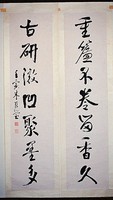 重簾不卷留香久
古研微凹聚墨多